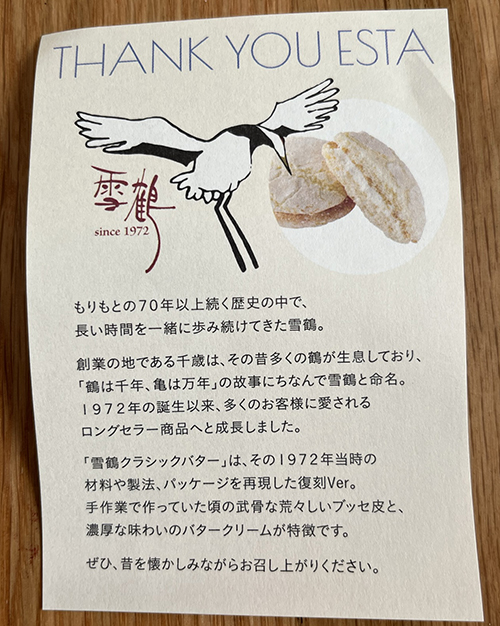 THANK YOU ESTA
雪鶴
since 1972
もりもとの70年以上続く歴史の中で、
長い時間を一緒に歩み続けてきた雪鶴。
創業の地である千歳は、その昔多くの鶴が生息しており、
「鶴は千年、亀は万年」の故事にちなんで雪鶴と命名。
1972年の誕生以来、多くのお客様に愛される
ロングセラー商品へと成長しました。
「雪鶴クラシックバター」は、その1972年当時の
材料や製法、パッケージを再現した復刻Ver。
手作業で作っていた頃の武骨な荒々しいブッセ皮と、
濃厚な味わいのバタークリームが特徴です。
ぜひ、昔を懐かしみながらお召し上がりください。